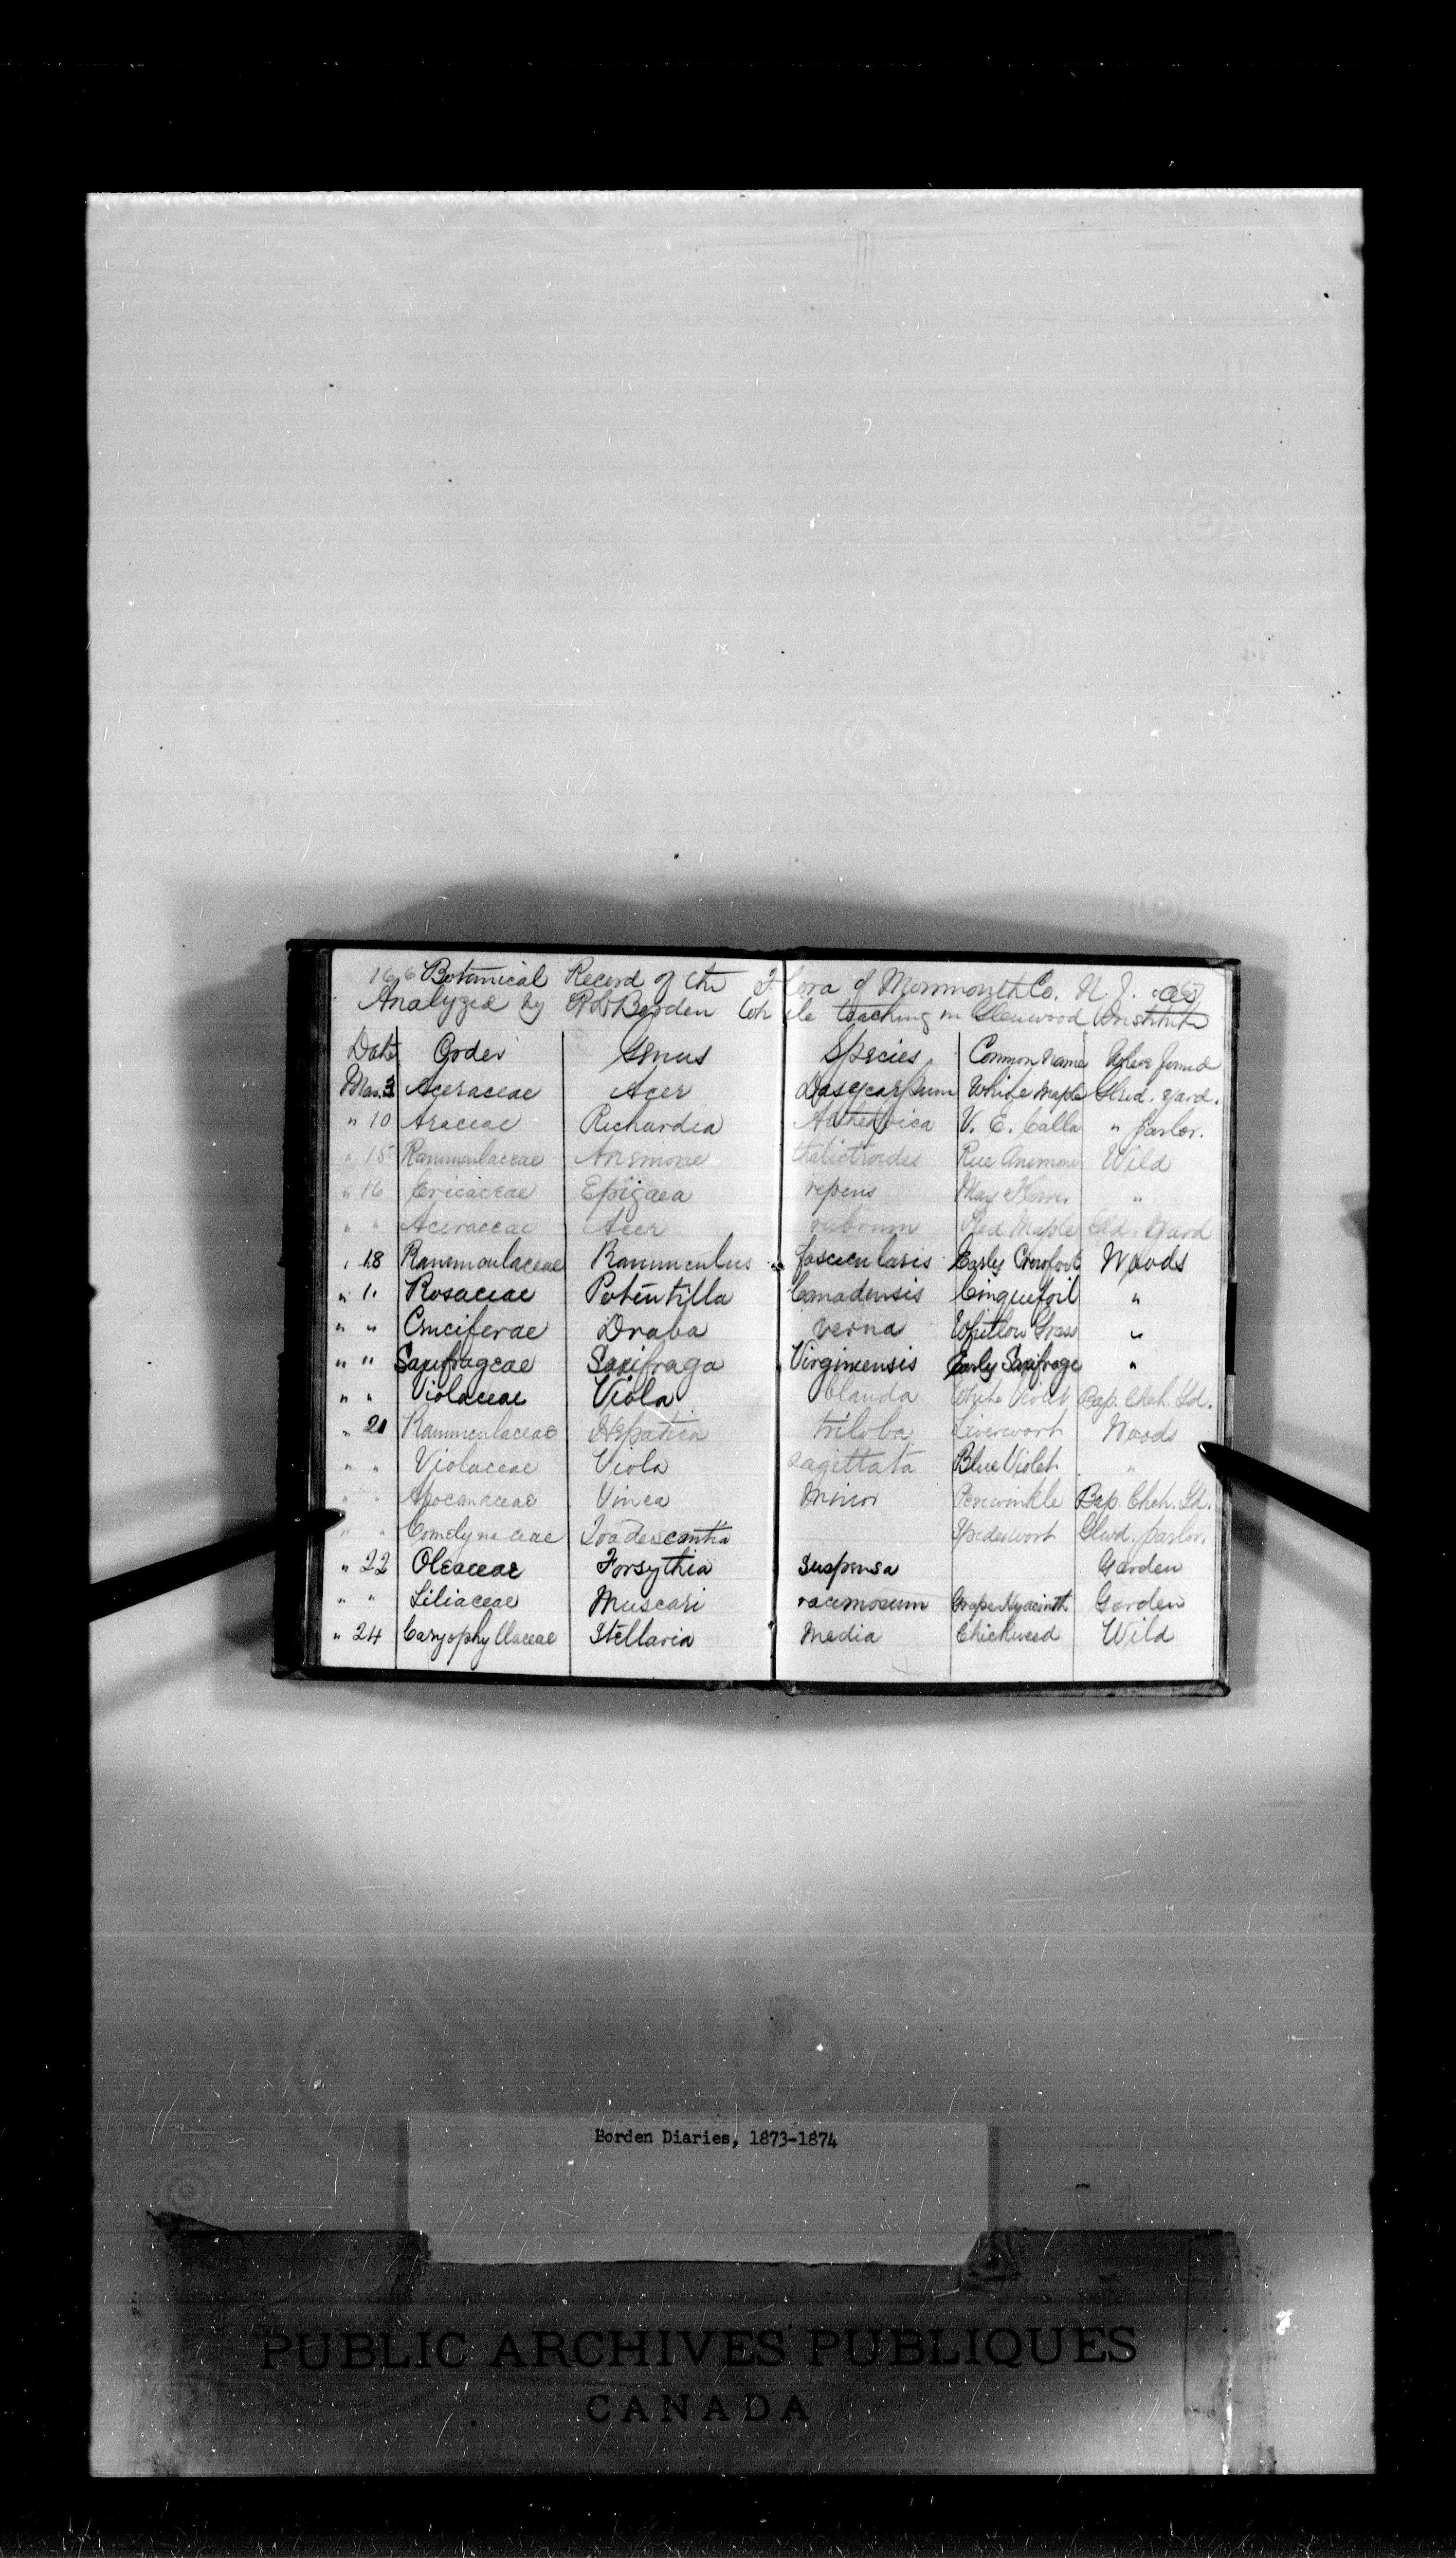 Botanical Record of the Flora of Monmouth Co. N. J. as
Analyzed by R L Borden While teaching in Glenwood Institute
Date Order Genus Species Common Name Where found
Mar. 3 Aceraceae Acer Dasycarpum White Maple Glwd. Yard.
" 10 Araceae Richardia Aethiopica V. E. Calla " Parlor.
" 15 Ranunculaceae Anemone thalictroides Rue Anemone Wild
" 16 Ericaceae Epigaea repens May Flower "
" " Aceraceae Acer rubrum Red Maple Gld. Yard
" 18 Ranunculaceae Ranunculus fascicularis Early Crowfoot Woods
" " Rosaceae Potentilla Canadensis Cinquefoil "
" " Cruciferae Draba verna Whitlow Grass "
" " Saxifrageae Saxifraga Virginiensis Early Saxifrage "
" " Violaceae Viola blanda White Violet Bap. Chch. Yd.
" 21 Ranunculaceae Hepatica triloba Liverwort Woods
" " Violaceae Viola sagittata Blue Violet "
" " Apocanaceae Vinca Minor Periwinkle Bap. Chch. Yd.
" " Comelynaceae Tradescantia Spiderwort Glwd. parlor.
" 22 Oleaceae Forsythia Suspensa Garden
" " Liliaceae Muscari racemosum Grape Hyacinth Garden
" 24 Caryophyllaceae Stellaria Media Chickweed Wild
Borden Diaries, 1873-1874
PUBLIC ARCHIVES PUBLIQUES
CANADA